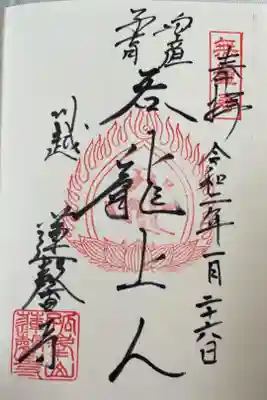 奉拝
令和二年一月二十六日
呑龍上人
川越
蓮馨寺